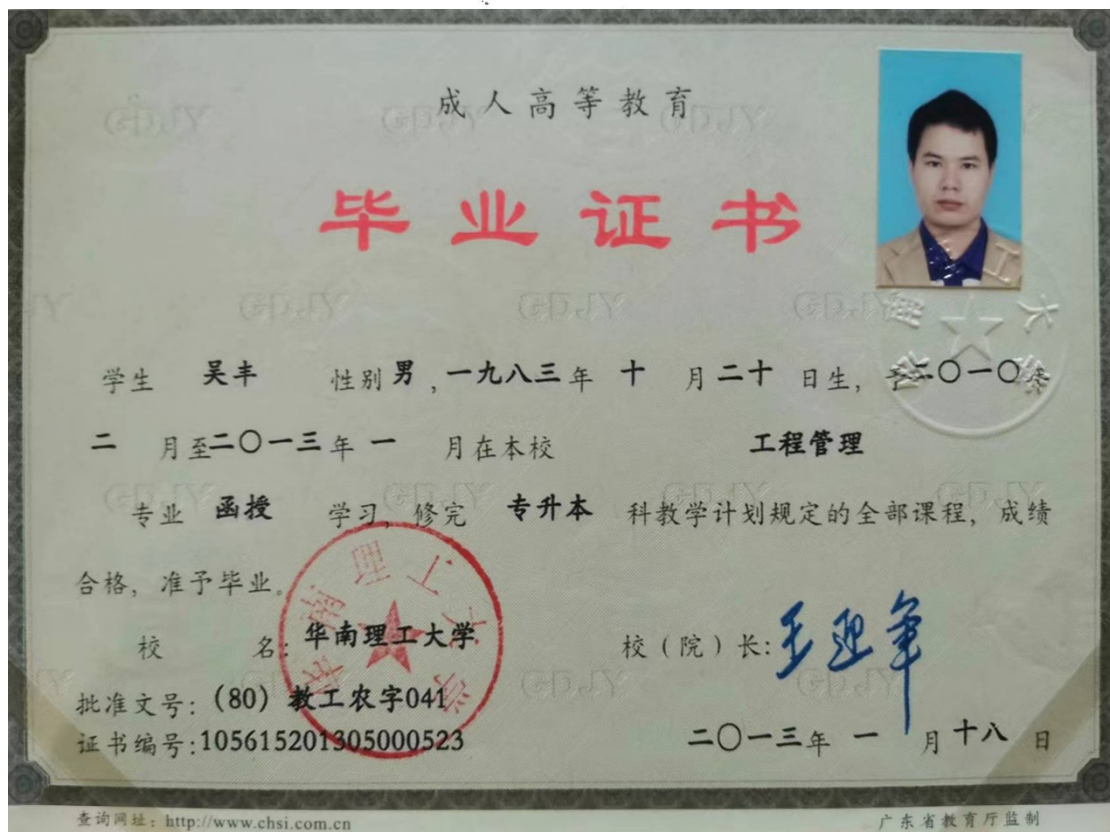 成人高等教育
毕业证书
学生 吴丰 性别 男，一九八三年 十 月二十 日生，于二〇一〇年
二 月至二〇一三年 一 月在本校 工程管理
专业 函授 学习，修完 专升本 科教学计划规定的全部课程，成绩
合格，准予毕业。
校 名：华南理工大学 校（院）长：王迎军
批准文号：（80）教工农字041
证书编号：105615201305000523
二〇一三年 一 月十八 日
查询网址：http://www.chsi.com.cn 广东省教育厅监制
华南理工大学
GDJY